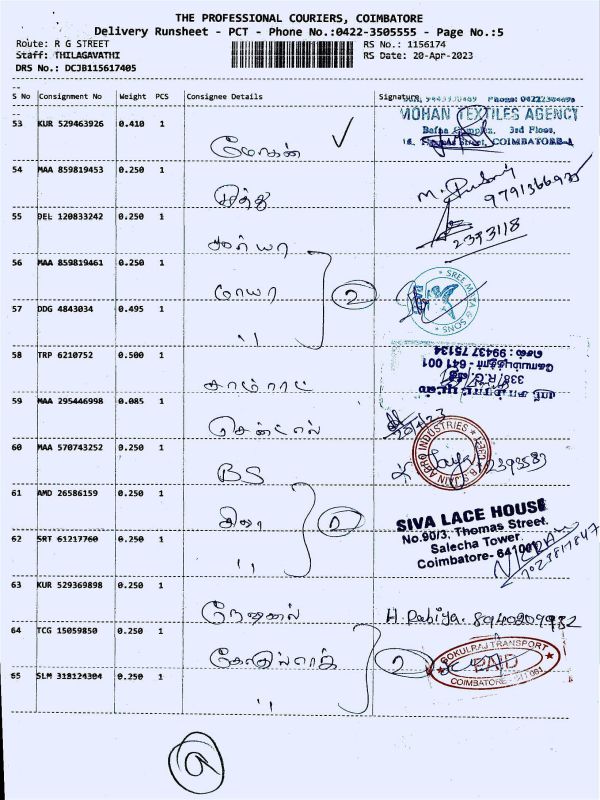 THE PROFESSIONAL COURIERS, COIMBATORE
Delivery Runsheet - PCT - Phone No.:0422-3505555 - Page No.:5
Route: R G STREET
RS No.: 1156174
Staff: THILAGAVATHI
RS Date: 20-Apr-2023
DRS No.: DCJB115617405
S No Consignment No Weight PCS Consignee Details Signature
MOHAN TEXTILES AGENCY
53 KUR 529463926 0.410 1
Bafna Complex, 3rd Floor,
Street, COIMBATORE-1
மோகன்
54 MAA 859819453 0.250 1
முத்து
55 DEL 120833242 0.250 1
2393118
சூர்யா
56 MAA 859819461 0.250 1
SREE MATA & SONS
மாயா 2
57 DDG 4843034 0.495 1
"
58 TRP 6210752 0.500 1
338/R.G.
கோயம்புத்தூர் - 641 001
செல் : 99437 75134
சாம்ராட்
59 MAA 295446998 0.085 1
20/4/23
சென்ட்ரல்
60 MAA 570743252 0.250 1
B.S. JAIN AGRO INDUSTRIES
BS
61 AMD 26586159 0.250 1
சிவா
SIVA LACE HOUSE
No.90/3, Thomas Street,
Salecha Tower,
Coimbatore- 641001
62 SRT 61217760 0.250 1
"
63 KUR 529369898 0.250 1
H. Rabiya. 8940209932
64 TCG 15059850 0.250 1
GOKULRAJ TRANSPORT
PAID
COIMBATORE - 641 001
கோகுல்ராஜ் 2
65 SLM 318124304 0.250 1
"
9